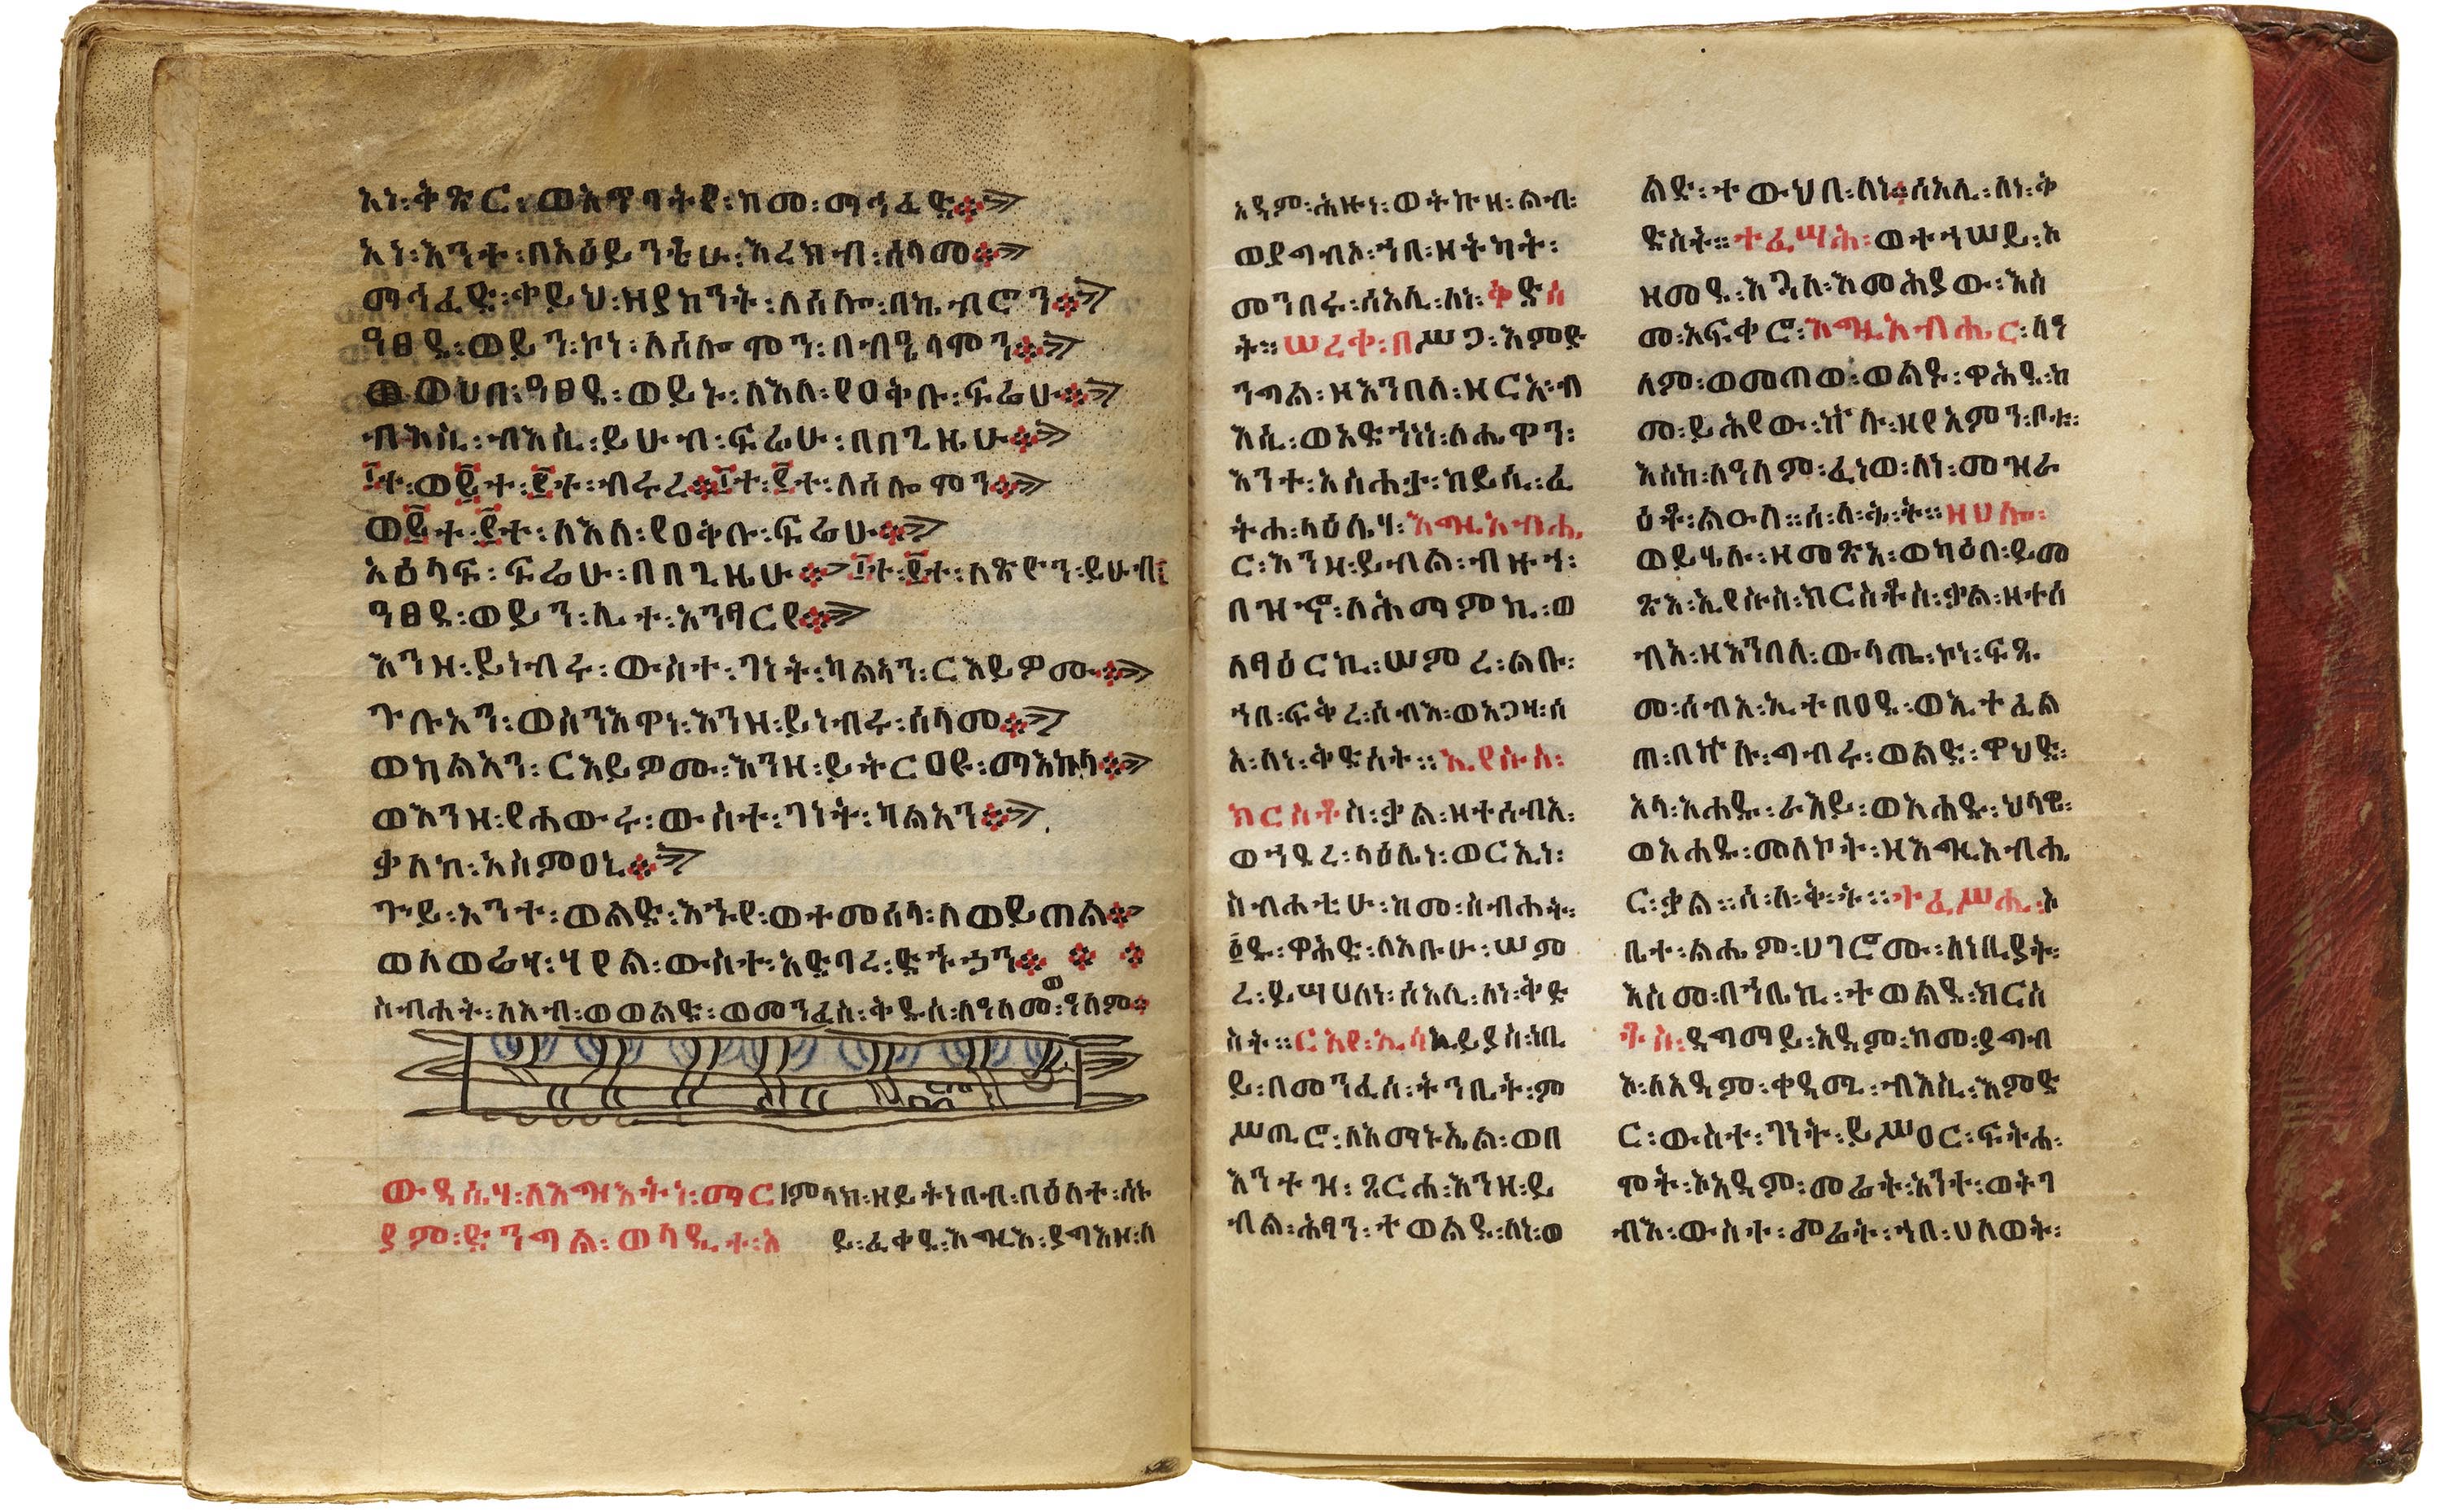 አነ፡ቅጽር፡ወአጥባትየ፡ከመ፡ማኅፈድ፨
አነ፡እንተ፡በአዕይንቲሁ፡እረክብ፡ሰላመ፨
ማኅፈድ፡ቀይህ፡ዘያከንት፡ለሰሎ፡በኪብሮን፨
ዓፀደ፡ወይን፡ኮነ፡ለሰሎሞን፡በብዔላሞን፨
ወወሀበ፡ዓፀደ፡ወይኑ፡ለእለ፡የዐቅቡ፡ፍሬሁ፨
ብእሲ፡ብእሲ፡ይሁብ፡ፍሬሁ፡በበጊዜሁ፨
፲ተ፡ወ፪ተ፡፪ተ፡ብሩረ፨፲ተ፡፪ተ፡ለሰሎሞን፨
ወ፪ተ፡፪ተ፡ለእለ፡የዐቅቡ፡ፍሬሁ፨
አዕላፍ፡ፍሬሁ፡በበጊዜሁ፨፲ተ፡፪ተ፡ለጽዮን፡ይሁብ፡
ዓፀደ፡ወይን፡ሊተ፡አንጻርየ፨
እንዘ፡ይነብሩ፡ውስተ፡ገነት፡ካልኣን፡ርእይዎሙ፨
ጕሁአን፡ወስንእዋነ፡እንዘ፡ይነብሩ፡ሰላመ፨
ወካልአን፡ርእይዎሙ፡እንዘ፡ይትርዐይ፡ማእከላ፨
ወእንዘ፡የሐውሩ፡ውስተ፡ገነት፡ካልአን፨
ቃለከ፡አስምዐኒ፨
ጕይ፡አንተ፡ወልድ፡እኁየ፡ወተመሰላ፡ለወይጠል፨
ወለወሬዛ፡ሃየል፡ውስተ፡አድባረ፡ድኅኃን፨ ፨ ፨
ስብሐት፡ለአብ፡ወወልድ፡ወመንፈስ፡ቅዱስ፡ለዓለመ፡ዓለም፨
ውዳሴሃ፡ለእግዝእትነ፡ማር
ያም፡ድንግል፡ወላዲተ፡አ
ምላክ፡ዘይትነበብ፡በዕለተ፡ሰኑ
ይ፡ፈቀደ፡እግዚእ፡ያግእዞ፡ለ
አዳም፡ሕዙነ፡ወትኩዘ፡ልብ፡
ወያግብኦ፡ኀበ፡ዘትካት፡
መንበሩ፡ሰአሊ፡ለነ፡ቅድስ
ት፡፡ሠረቀ፡በሥጋ፡እምድ
ንግል፡ዘእንበለ፡ዘርአ፡ብ
እሲ፡ወአድኀነነ፡ለሔዋን፡
እንተ፡አስሐታ፡ከይሲ፡ፈ
ትሐ፡ላዕሌሃ፡እግዚአብሔ
ር፡እንዘ፡ይብል፡ብዙኀ፡
በዝኆ፡ለሕማምኪ፡ወ
ለፃዕርኪ፡ሠምረ፡ልቡ፡
ኀበ፡ፍቅረ፡ሰብእ፡ወአጋዛ፡ሰ
አ፡ለነ፡ቅድስት፡፡ኢየሱስ፡
ክርስቶስ፡ቃል፡ዘተሰብአ፡
ወኀደረ፡ላዕሌነ፡ወርኢነ፡
ስብሐቲሁ፡ከመ፡ስብሐት፡
፩ዱ፡ዋሕድ፡ለአቡሁ፡ሠም
ረ፡ይሣሀለነ፡ሰአሊ፡ለነ፡ቅድ
ስት፡፡ርእየ፡ኢሳኢይያስ፡ነቢ
ይ፡በመንፈሰ፡ትንቢት፡ም
ሥጢሮ፡ለአማኑኤል፡ወበ
እንተዝ፡ጸርሐ፡እንዘ፡ይ
ብል፡ሕፃን፡ተወልደ፡ለነ፡ወ
ልድ፡ተውህበ፡ለነ፡ሰአሊ፡ለነ፡ቅ
ድስት፡፡ተፈሣሕ፡ወተኀሠይ፡አ
ዝመደ፡እጓለ፡እመሕያው፡እስ
መ፡አፍቀሮ፡እግዚአብሔር፡ለዓ
ለም፡ወመጠወ፡ወልዱ፡ዋሕደ፡ከ
መ፡ይሕየው፡ኵሉ፡ዘየአምን፡ቦቱ፡
እስከ፡ለዓለም፡ፈነወ፡ለነ፡መዝራ
ዕቶ፡ልዑለ፡፡ሰ፡ለ፡ቅ፡ት፡፡ዘሀሎ፡
ወይሄሉ፡ዘመጽአ፡ወካዕበ፡ይመ
ጽእ፡ኢየሱስ፡ክርስቶስ፡ቃል፡ዘተሰ
ብአ፡ዘእንበለ፡ውላጤ፡ኮነ፡ፍጹ
መ፡ሰብአ፡ኢተበዐደ፡ወኢተፈል
ጠ፡በኵሉ፡ግብሩ፡ወልድ፡ዋህድ፡
አላ፡አሐዱ፡ራእይ፡ወአሐዱ፡ህላዌ፡
ወአሐዱ፡መለኮት፡ዘእግዚአብሔ
ር፡ቃል፡፡ሰ፡ለ፡ቅ፡ት፡፡ተፈሥሒ፡ኦ
ቤተ፡ልሔም፡ሀገሮሙ፡ለነቢያት፡
እስመ፡በኀቤኪ፡ተወልደ፡ክርስ
ቶስ፡ዳግማይ፡አዳም፡ከመ፡ያግብ
ኦ፡ለአዳም፡ቀዳሚ፡ብእሲ፡እምድ
ር፡ውስተ፡ገነት፡ይሥዐር፡ፍትሐ፡
ሞት፡ኦአዳም፡መሬት፡አንተ፡ወትገ
ብእ፡ውስተ፡መሬት፡ኀበ፡ሀለወት፡